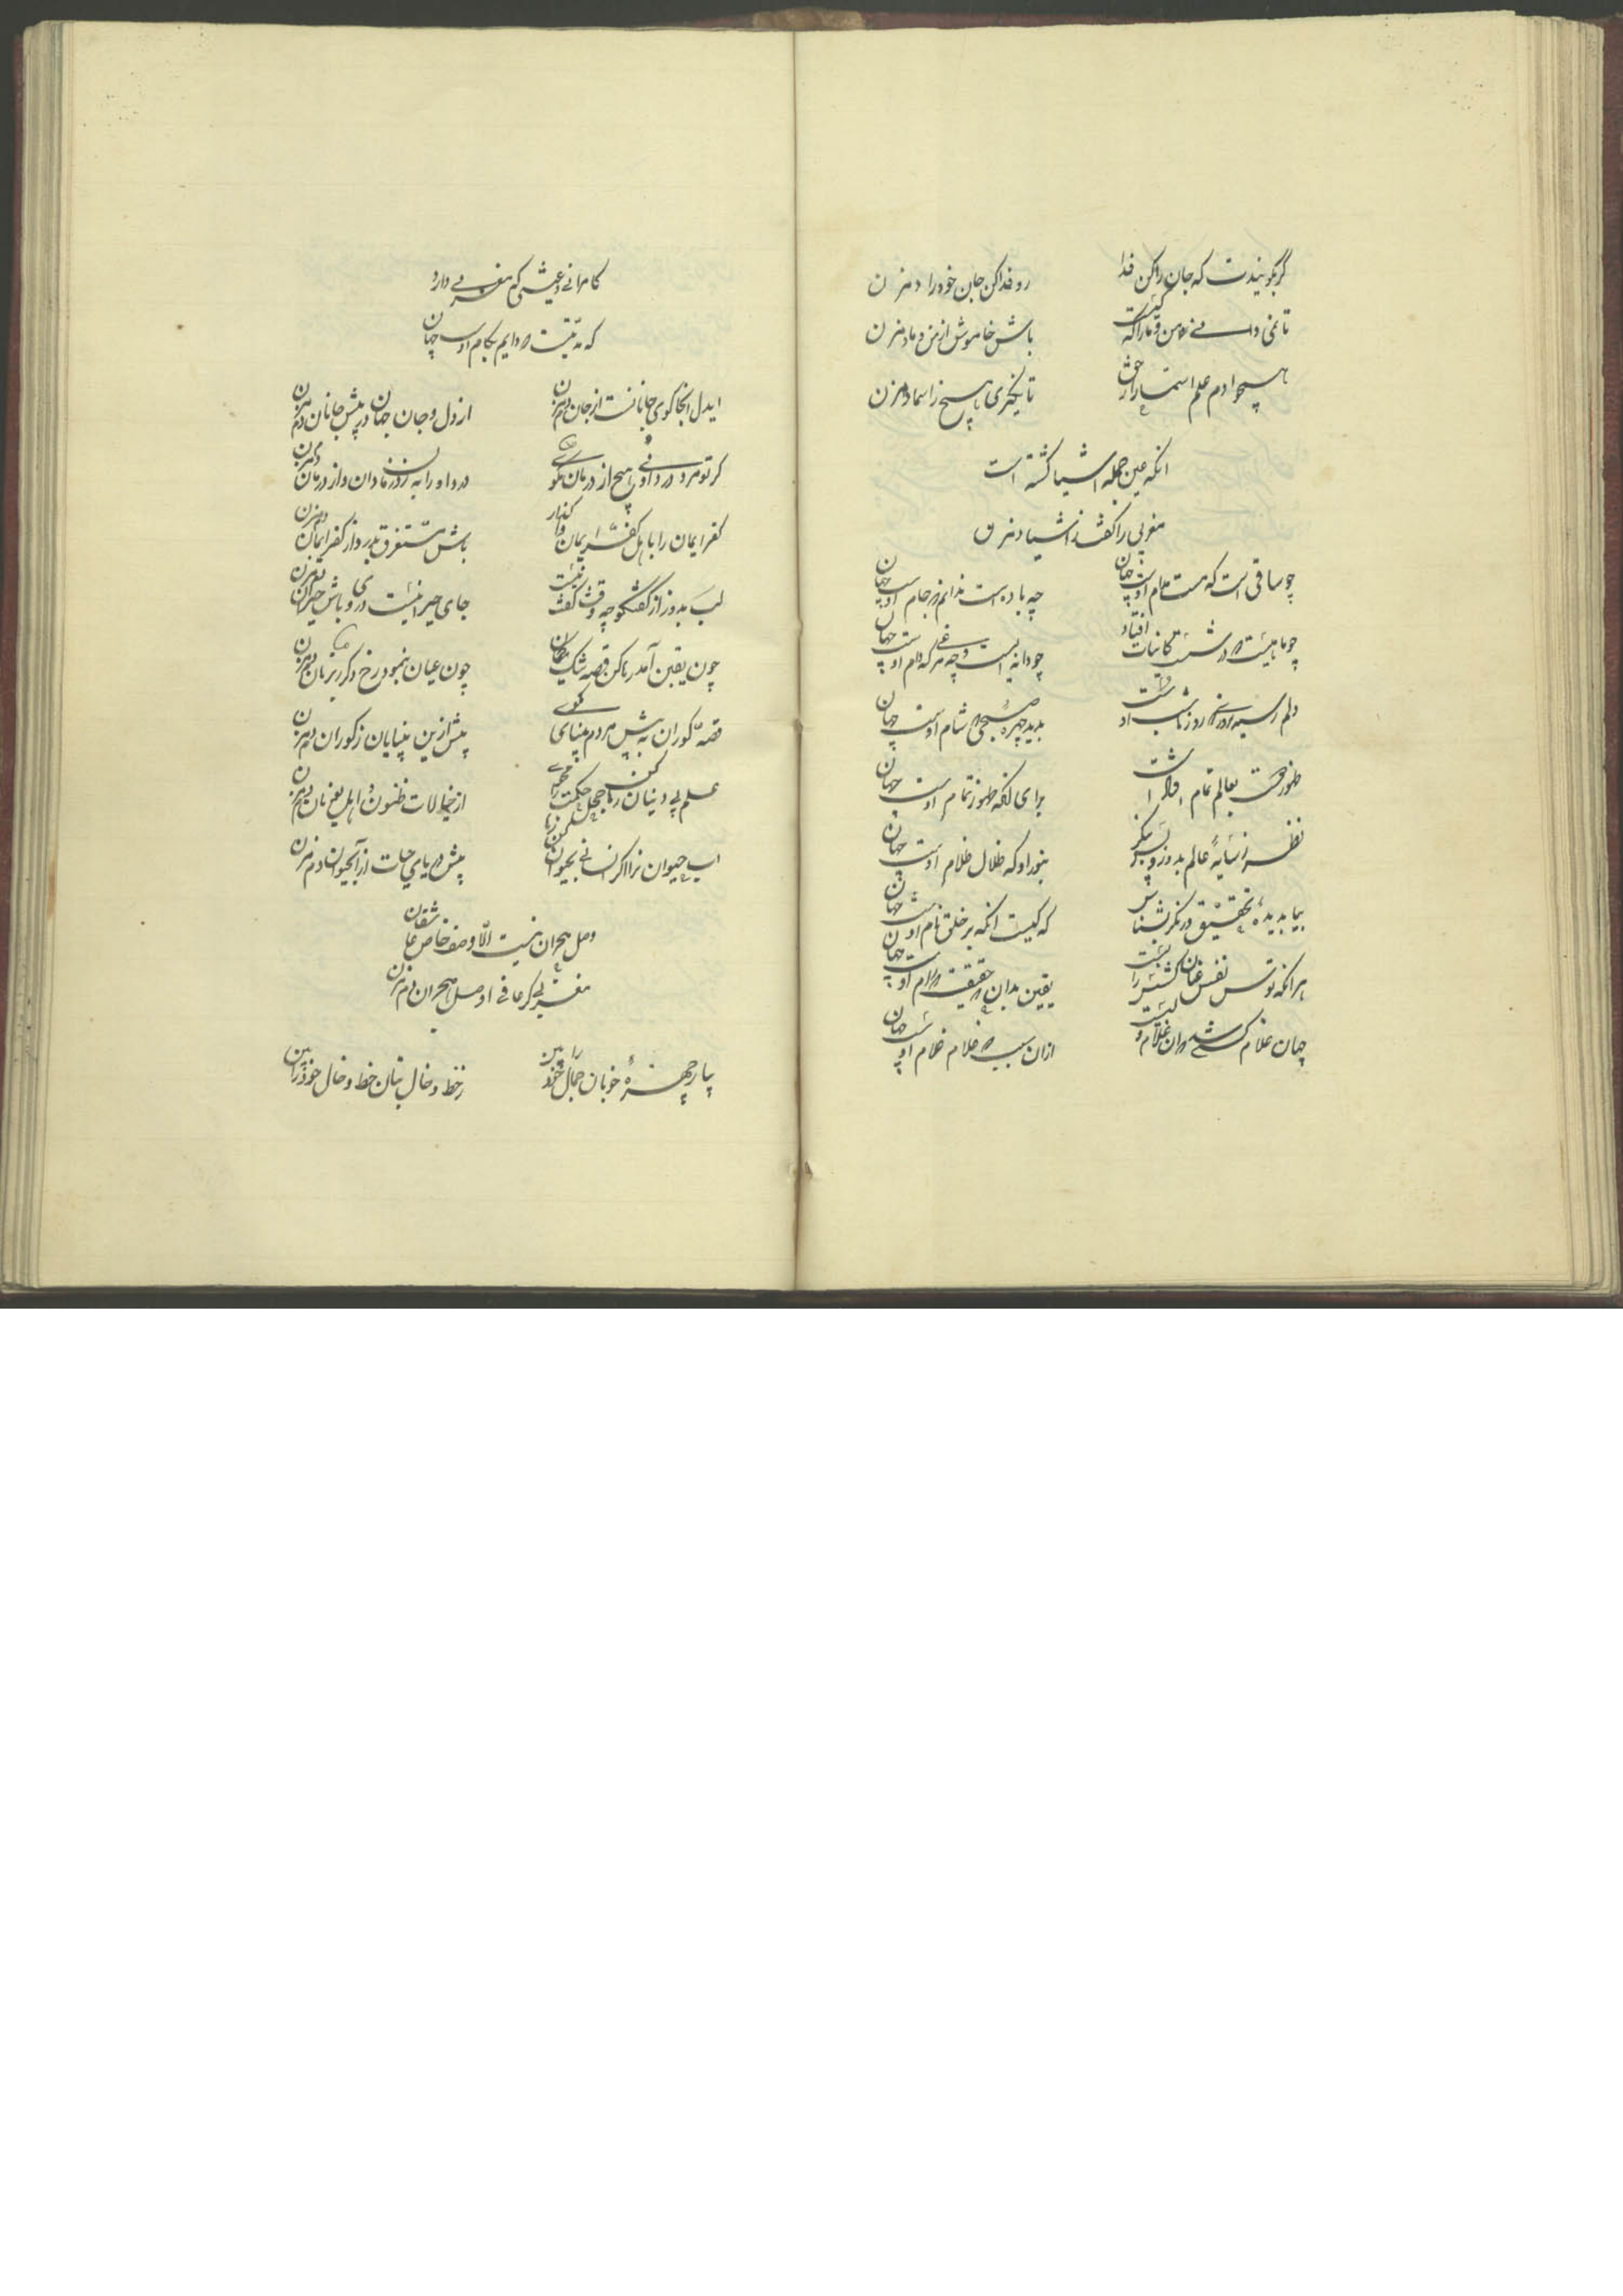 گر بگویندت که جان را کن فدا رو فدا کن جان خود را دم مزن
تا نمی دانی من و ما را که کیست باش خاموش از من و ما دم مزن
همچو آدم علم اسما را ز حق تا نگیری هیچ ز اسما دم مزن
انکه عین جمله اشیا گشته است
مغربی را گفت از اشیا دم مزن
چو ساقی است که مست مدام اوست جهان چه باده است ندانم در جام اوست جهان
چو ماهیست که در شست کائنات افتاد چو دانه ایست و چه مرغی که دام اوست جهان
دلم رسید روزی که روز ما شب اوست بدید چهره صبحی که شام اوست جهان
ظهور حق بعالم تمام برای آنکه ظهور تمام اوست جهان
نظر ز سایهٔ عالم بدوز و پس بنگر بنور او که ظلال ظلام اوست جهان
بیا بدیدهٔ تحقیق در نگر بشناس که کیست انکه بر خلق نام اوست جهان
هر انکه توسن نفس عنان کشش را یقین بدان که حقیقت که رام اوست جهان
جهان غلام کسی شد که ان غلام ویست ازان سبب که غلام غلام اوست جهان
کامرانی و عیشی که مغربی دارد
که مدتیست که دایم بکام اوست جهان
ایدل اینجا کوی جانانست از جان دم مزن از دل و جان جهان در پیش جانان دم مزن
گر تو مرد درد اویی هیچ از درمان مگوی درد او را به ز درمان دان و از درمان دم مزن
کفر ایمان را باهل کفر و ایمان واگذار باش مستغرق بدو و از کفر ایمان دم مزن
لب بدوز از گفتگو چه وقت گفت نیست جای حیرانیست دری و باش حیران دم مزن
چون یقین آمد رها کن قصه شک و گمان چون عیان بنمود رخ دیگر ز برهان دم مزن
قصه کوران به پیش مردم بینا مگوی پیش ازین بینایان ز کوران دم مزن
علم بی دینان رها کن جهل حکمت را مخوان از خیالات ظنون و اهل یونان دم مزن
اب حیوان را اگر انسانی بحیوان پیش دریای حیات از آبحیوان دم مزن
وصل هجران نیست الّا وصف خاص عاشقان
مغربی گر عارفی از وصل هجران دم مزن
بیا در چهرهٔ خوبان جمال خود را بین ز خط و خال بتان خط و خال خود را بین